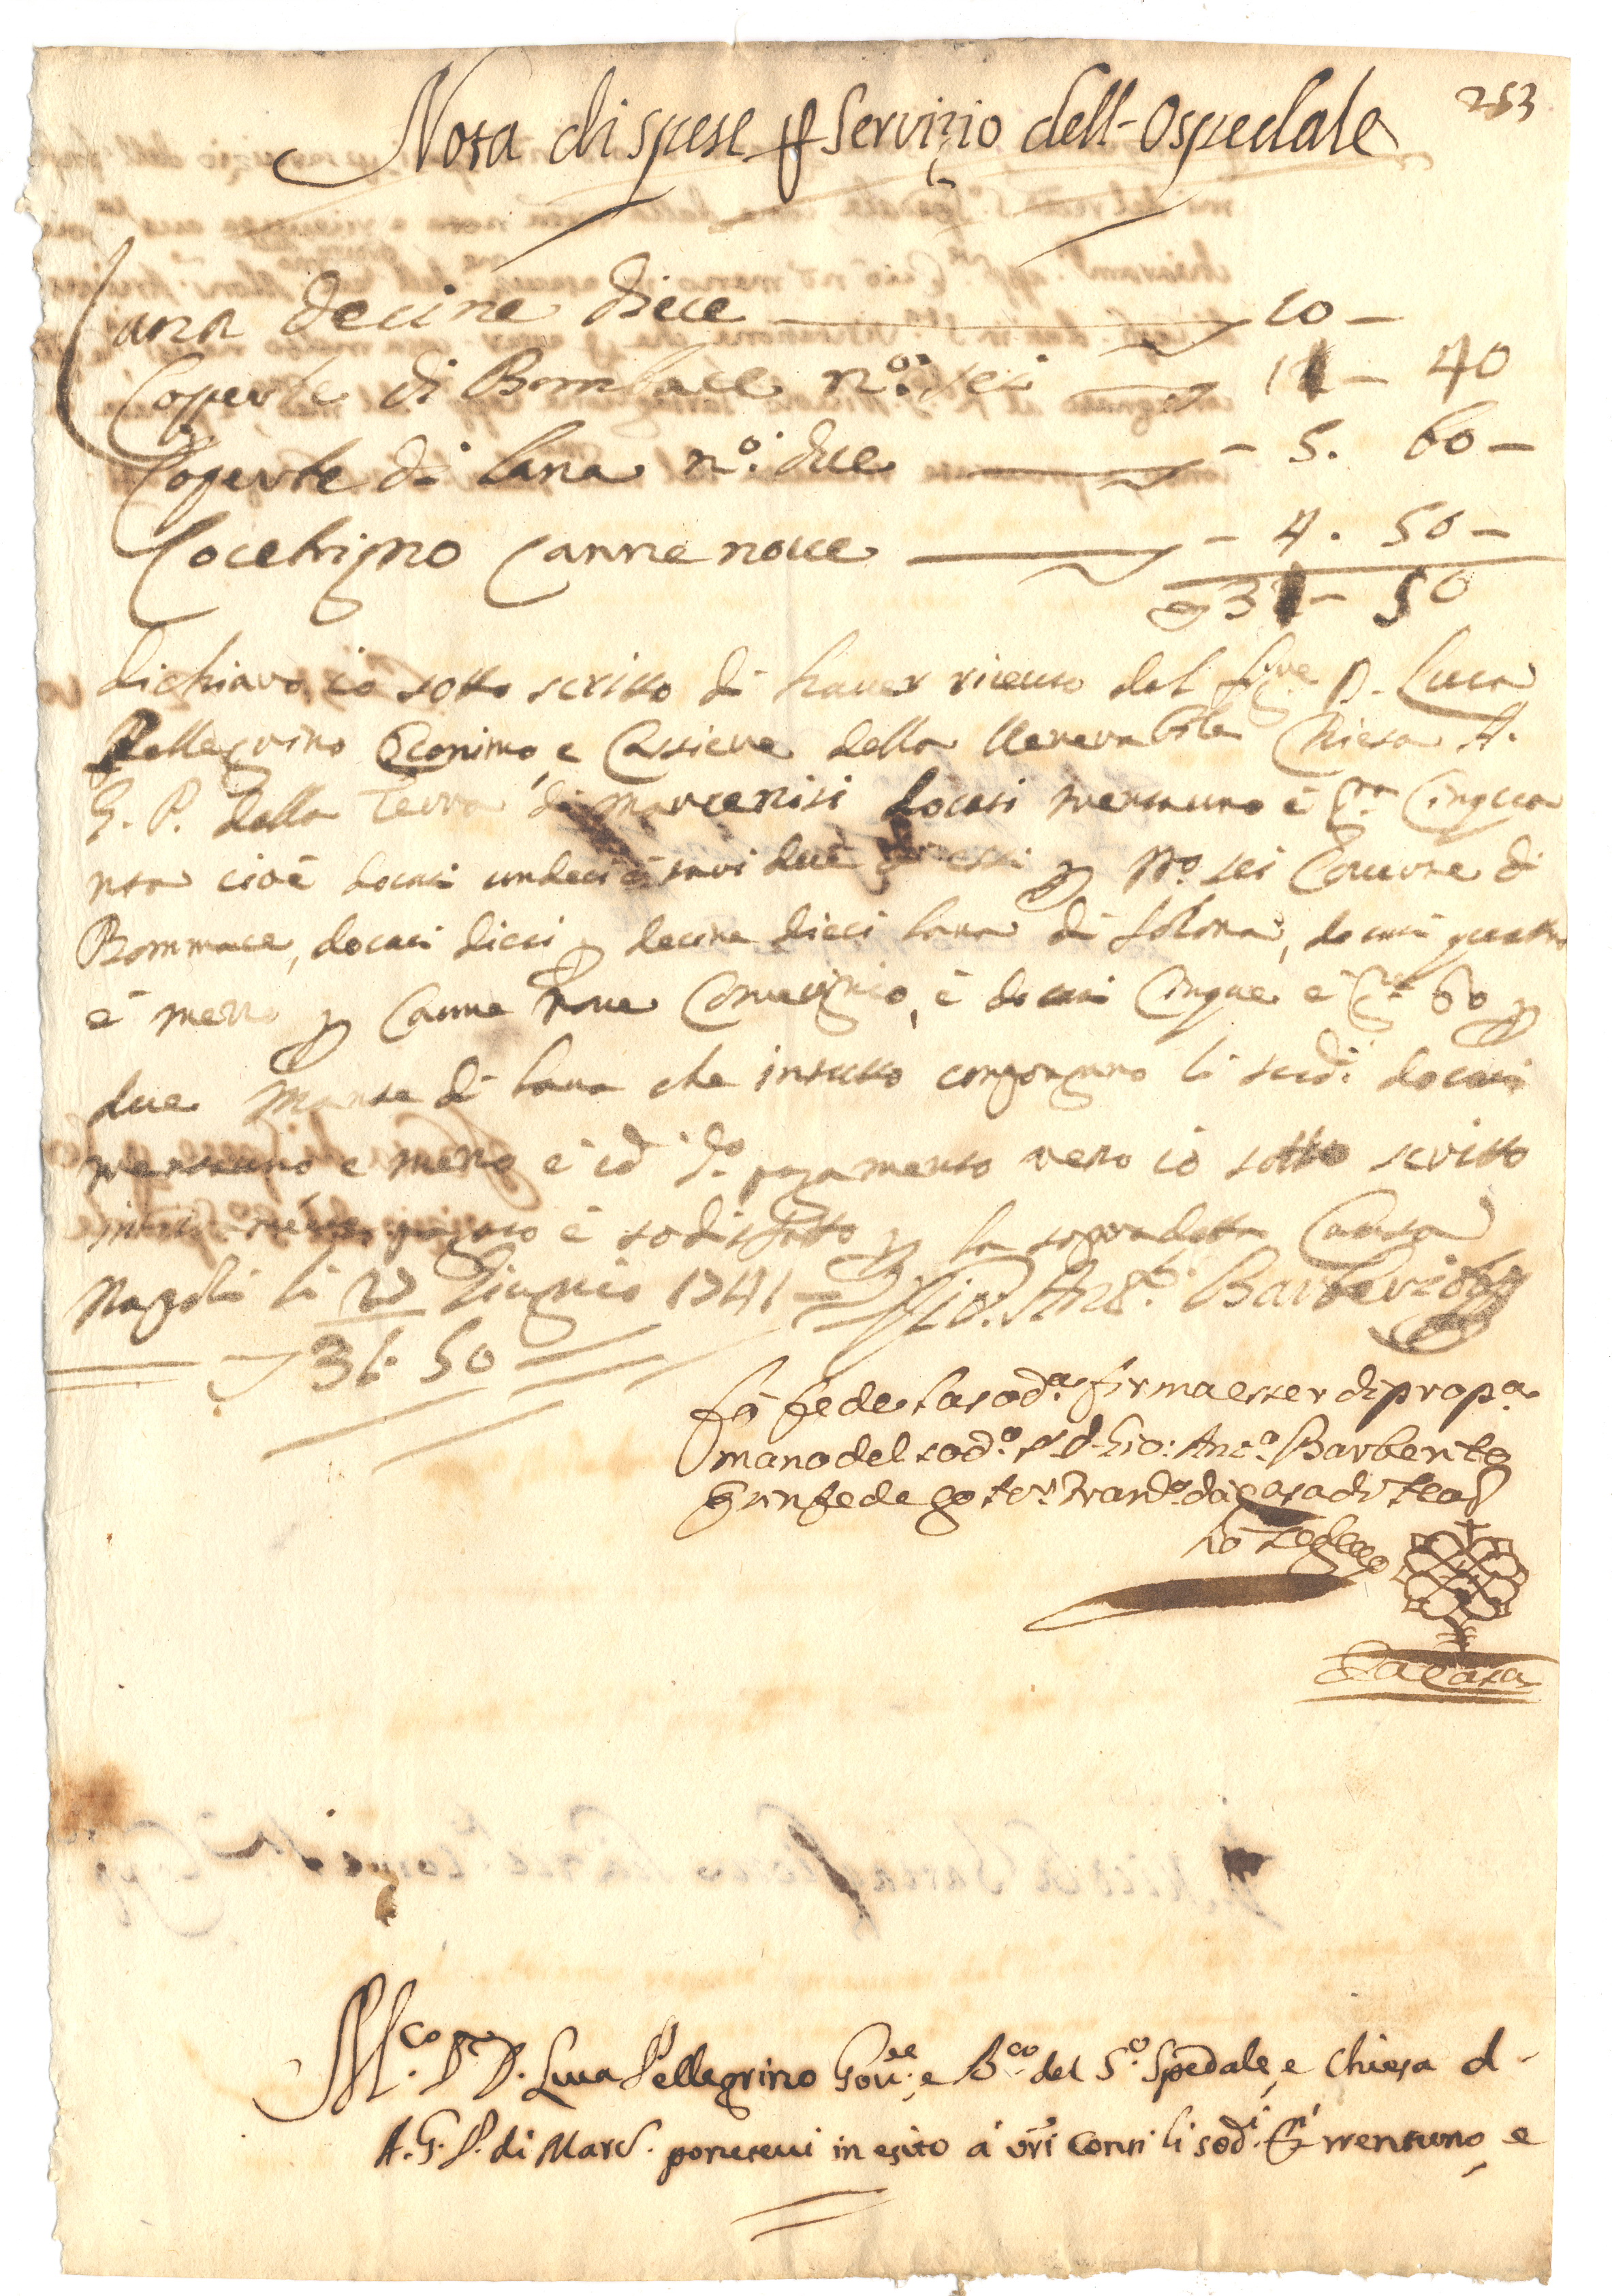 253
Nota di spese per Servizio dell-Ospedale
Lana decine diece 10 -
Coperte di Bombace n.º sei 11 - 40
Coperte di lana n.º due - 5. 60 -
Cocchigno Canne nove - 4. 50 -
31 - 50
Dichiaro io sotto scritto di haver riceuto dal D. Luca
Pellegrino Economo, e Cassiere della Venerabile Chiesa A.
G. P. della Terra di Marcenisi docati trentuno è g.na Cinqua
nta cioè docati undeci è tarì due per n.º sei Coverte di
Bommace, docati dieci per decine dieci lana di , docati quattro
è mezzo per Canne nove , è docati Cinque e g.na 60 per
due Mante di lana che in tutto congongono li sud.i docati
trentuno e mezo è id d.º pagamento resto io sotto scritto
pagato è sodisfatto per la sopradetta Causa
Napoli li 27 Giugnio 1741 - Gio: Ant.º Barberito
31. 50
Fò fede la sod.ª firma esser di prop.ª
mano del sod.º s.r d. Gio: Ant.º Barberito
in fede Io not.r da Casa di
La Casa
M.co D.r D. Luca Pellegrino Gov.re, e B.co del S.º Spedale, e Chiesa d-
A. G. P. di Marc. ponetevi in esito a' vri conti li sod.i trentuno, e